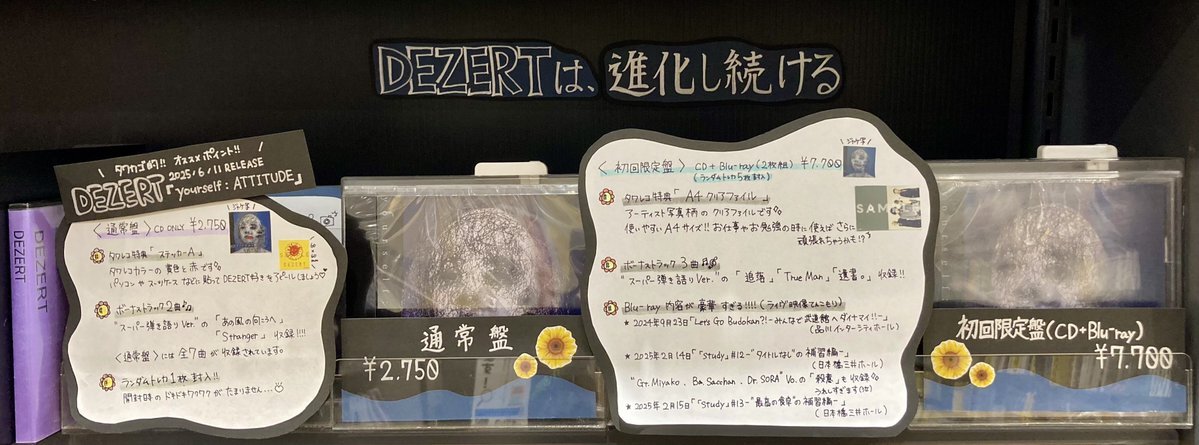 DEZERTは、進化し続ける
\ タワレコ的!! オススメポイント!! /
2025/6/11 RELEASE
DEZERT『yourself : ATTITUDE』
〈通常盤〉CD ONLY ¥2.750
\ ジャケ写 /
タワレコ特典「ステッカーA」
タワレコカラーの黄色と赤です。
パソコンやスーツケースなどに貼ってDEZERT好きをアピールしましょう♡
ボーナストラック2曲
"スーパー弾き語りVer."の「あの風の向こうへ」
「Stranger」収録!!!!
〈通常盤〉には全7曲が収録されています。
ランダムトレカ1枚封入!!
開封時のドキドキワクワクがたまりません...
DEZERT
DEZERT
通常盤
¥2.750
〈初回限定盤〉CD+Blu-ray(2枚組) ¥7.700
(ランダムトレカ5枚封入)
\ ジャケ写 /
タワレコ特典「A4クリアファイル」
アーティスト写真柄のクリアファイルです。
使いやすいA4サイズ!! お仕事やお勉強の日に使えばさらに
頑張れちゃうかも!?
SAMPLE
ボーナストラック3曲
"スーパー弾き語りVer."の「追落」「True Man」「遺書。」収録!!
Blu-ray内容が豪華すぎる!!!!(ライヴ映像てんこもり)
★2024年9月23日「Let's Go Budokan?!-みんなで武道館へダイナマイ!!-」
(品川インターシティホール)
★2025年2月14日「「Study」#12-"タイトルなし"の補習編-」
(日本橋三井ホール)
"Gt.Miyako、Ba.Sacchan、Dr.SORA"Vo.の「殺意」も収録。
うれしすぎます(泣)
★2025年2月15日「「Study」#13-"最高の食卓"の補習編-」
(日本橋三井ホール)
初回限定盤(CD+Blu-ray)
¥7.700